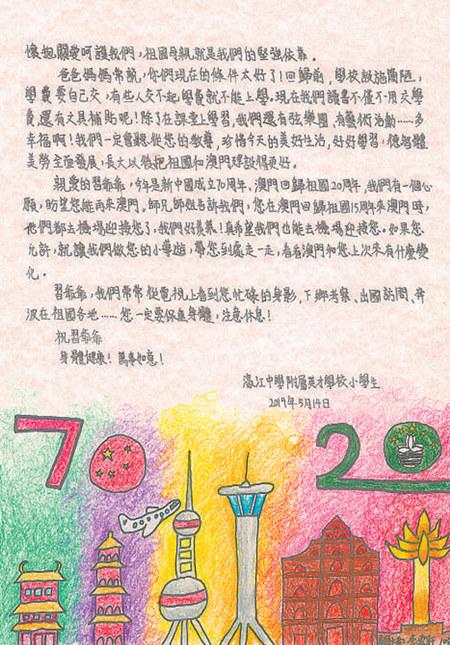 懷抱關愛呵護我們，祖國母親就是我們的堅強依靠。
爸爸媽媽常說，你們現在的條件太好了！回歸前，學校設施簡陋，
學費要自己交，有些人交不起學費就不能上學。現在我們讀書不僅不用交學
費，還有文具補貼呢！除了在課堂上學習，我們還有弦樂團、有藝術活動……多
幸福啊！我們一定會聽從您的教導，珍惜今天的美好生活，好好學習，德智體
美勞全面發展，長大以後把祖國和澳門建設得更好。
親愛的習爺爺，今年是新中國成立70周年、澳門回歸祖國20周年，我們有一個心
願，盼望您能再來澳門。師兄師姐告訴我們，您在澳門回歸祖國15周年來澳門時，
他們都去機場迎接您了，我們好羨慕！真希望我們也能去機場迎接您。如果您
允許，就讓我們做您的小導遊，帶您到處走一走，看看澳門和您上次來有什麼變
化。
習爺爺，我們常常從電視上看到您忙碌的身影，下鄉考察、出國訪問、奔
波在祖國各地……您一定要保重身體，注意休息！
祝習爺爺
身體健康！萬事如意！
濠江中學附屬英才學校小學生
2019年5月14日
70
20